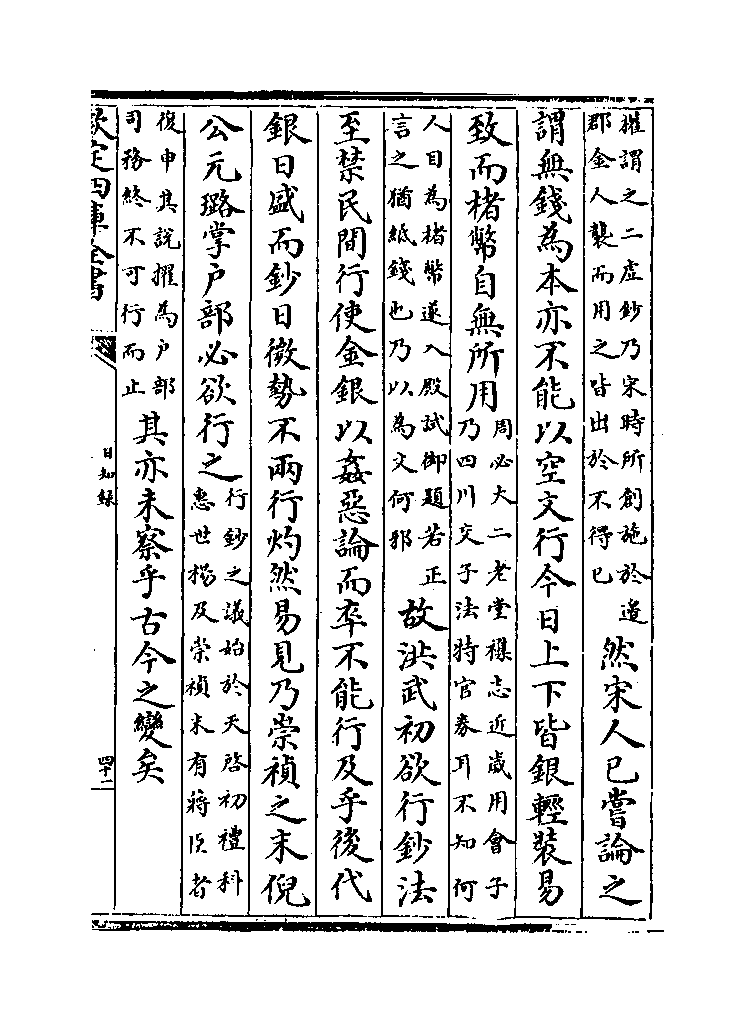 謂之二虛鈔乃宋時所創施於邉
郡金人襲而用之皆出於不得已
然宋人已嘗論之
謂無錢為本亦不能以空文行今日上下皆銀輕裝易
致而楮幣自無所用
周必大二老堂襍志近嵗用會子
乃四川交子法特官券耳不知何
人目為楮幣遂入殿試御題若正
言之猶紙錢也乃以為文何邪
故洪武初欲行鈔法
至禁民間行使金銀以姦惡論而卒不能行及乎後代
銀日盛而鈔日微勢不兩行灼然易見乃崇禎之末倪
公元璐掌户部必欲行之
行鈔之議始於天啓初禮科
惠世揚及崇禎末有蔣臣者
復申其説擢為户部
司務終不可行而止
其亦未察乎古今之變矣
欽定四庫全書
日知録
四十二